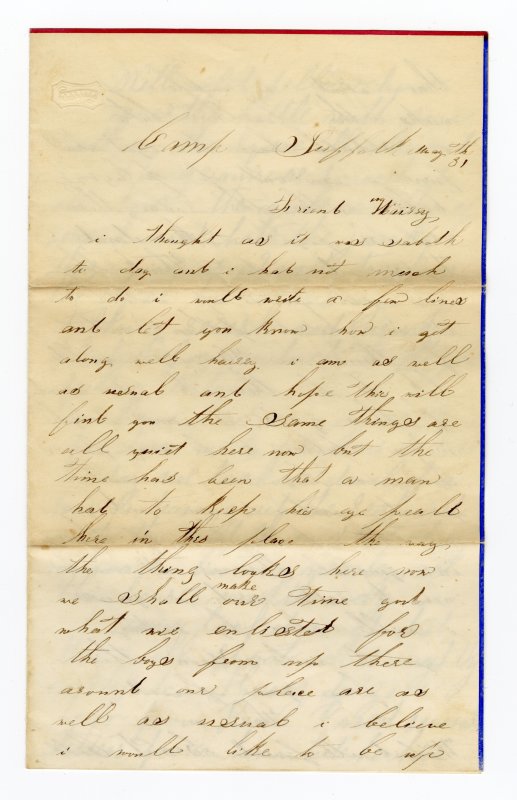 Camp Suffolk May th 31
Friend Harry
i thought as it was saboth
to day and i had not mush
to do i would write a few lines
and let you know how i get
along well harry i am as well
as usual and hope this will
find you the same things are
all quiet here now but the
time has been that a man
had to keep his eye peall
there in this place the way
the thing looks here now
we shall make our time good
what we enlisted for
the boys from up there
around our place are as
well as usual i believe
i would like to be up